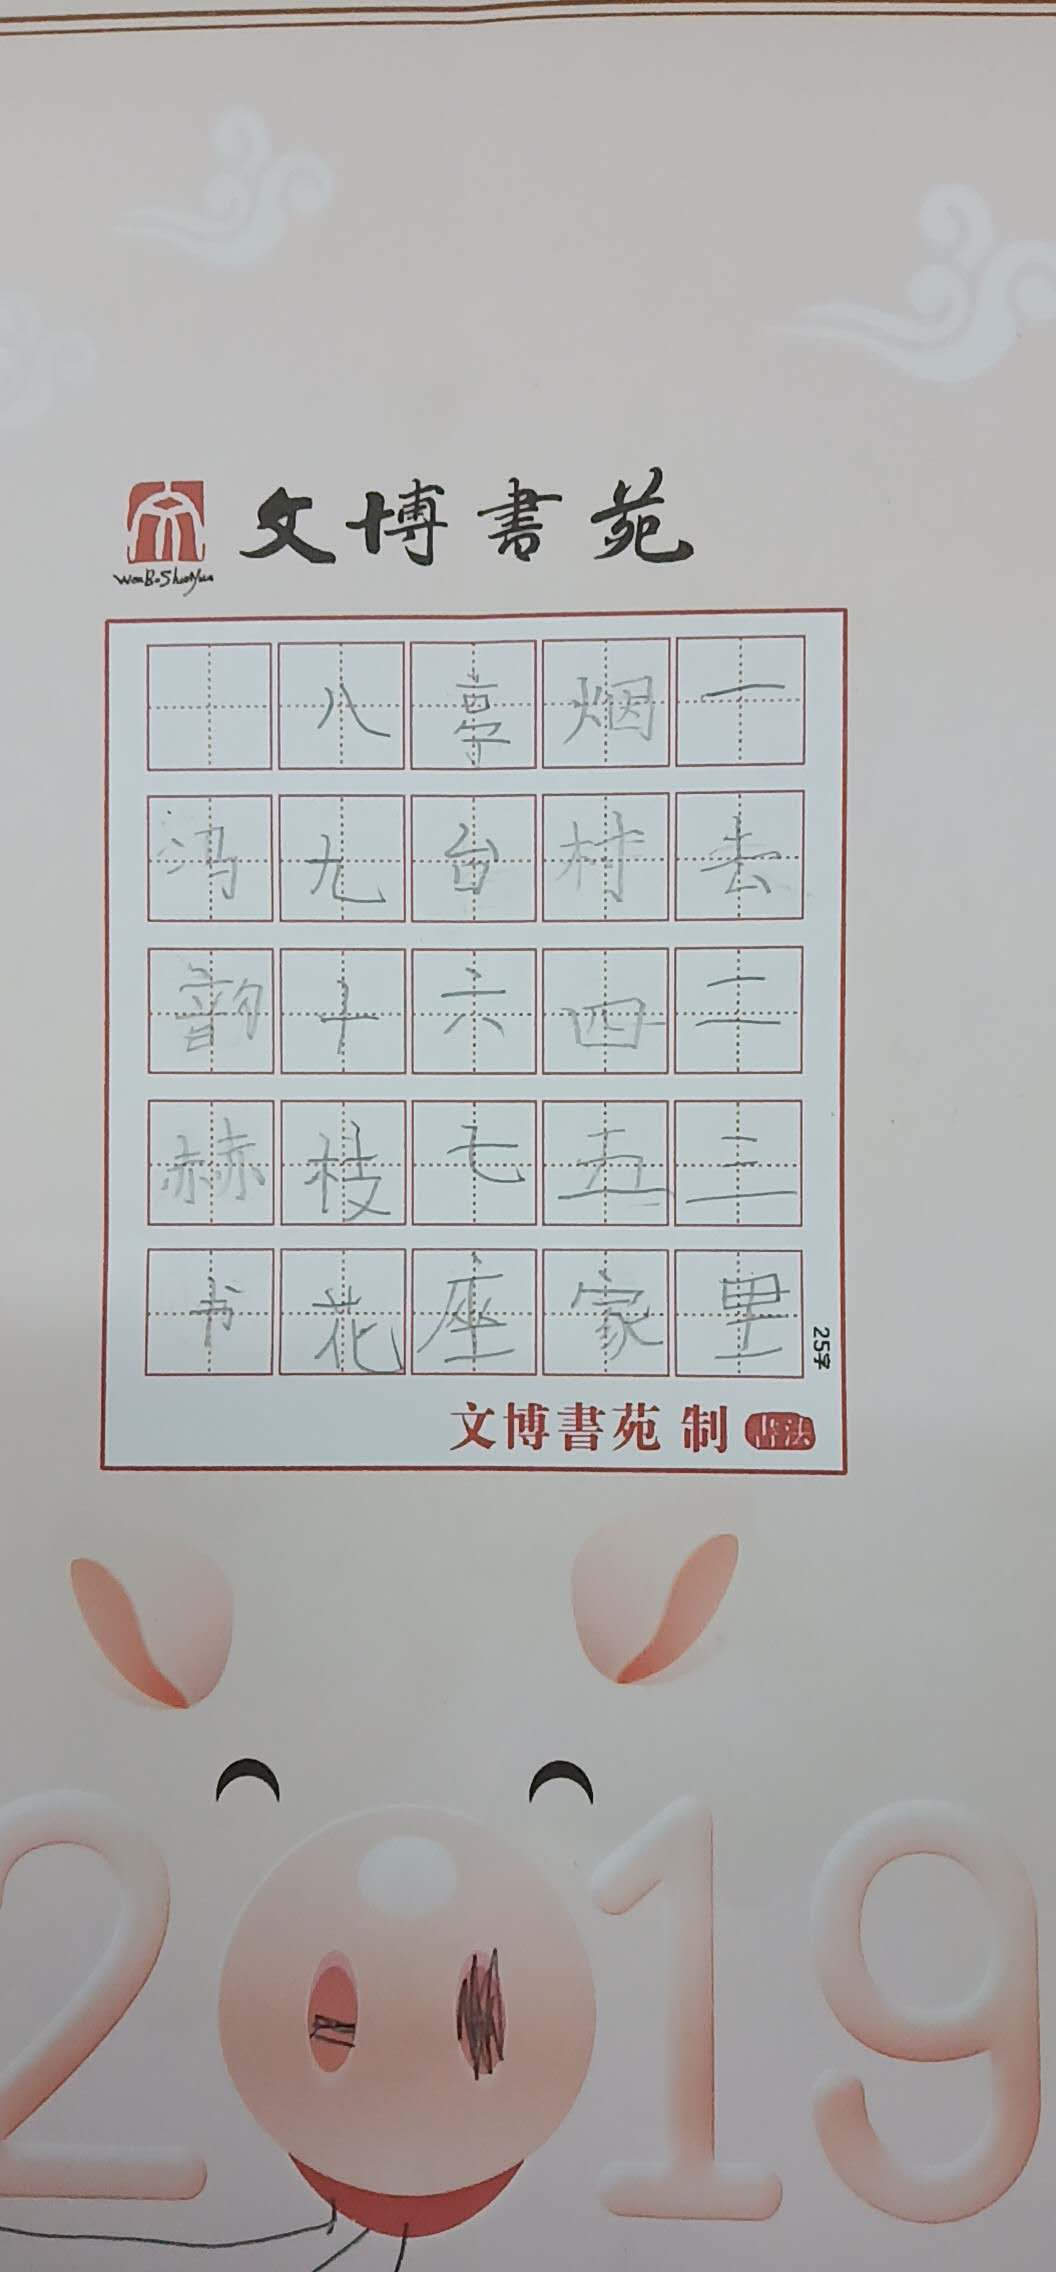 文博書苑
WenBoShuYuan
一去二三里
烟村四五家
亭台六七座
八九十枝花
冯韵赫书
25字
文博書苑 制
2019